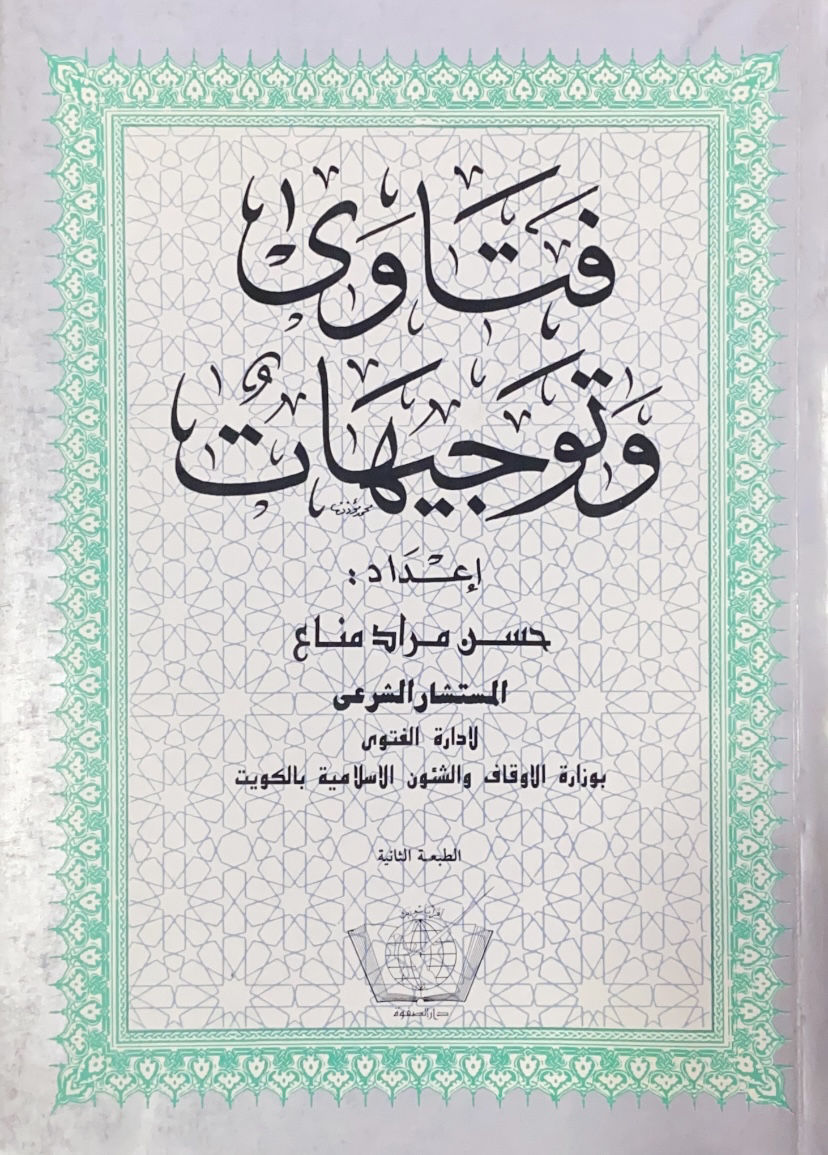 فَتَاوَى
وَتَوجِيهَاتٌ
إعْـدَاد :
حســن مـراد منـاع
المستشار الشرعى
لادارة الفتوى
بوزارة الاوقاف والشئون الاسلامية بالكويت
الطبعـة الثانية
دار الصفوة